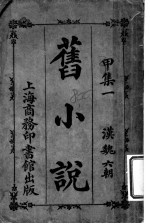 甲集一
漢魏六朝
舊小說
上海商務印書館出版